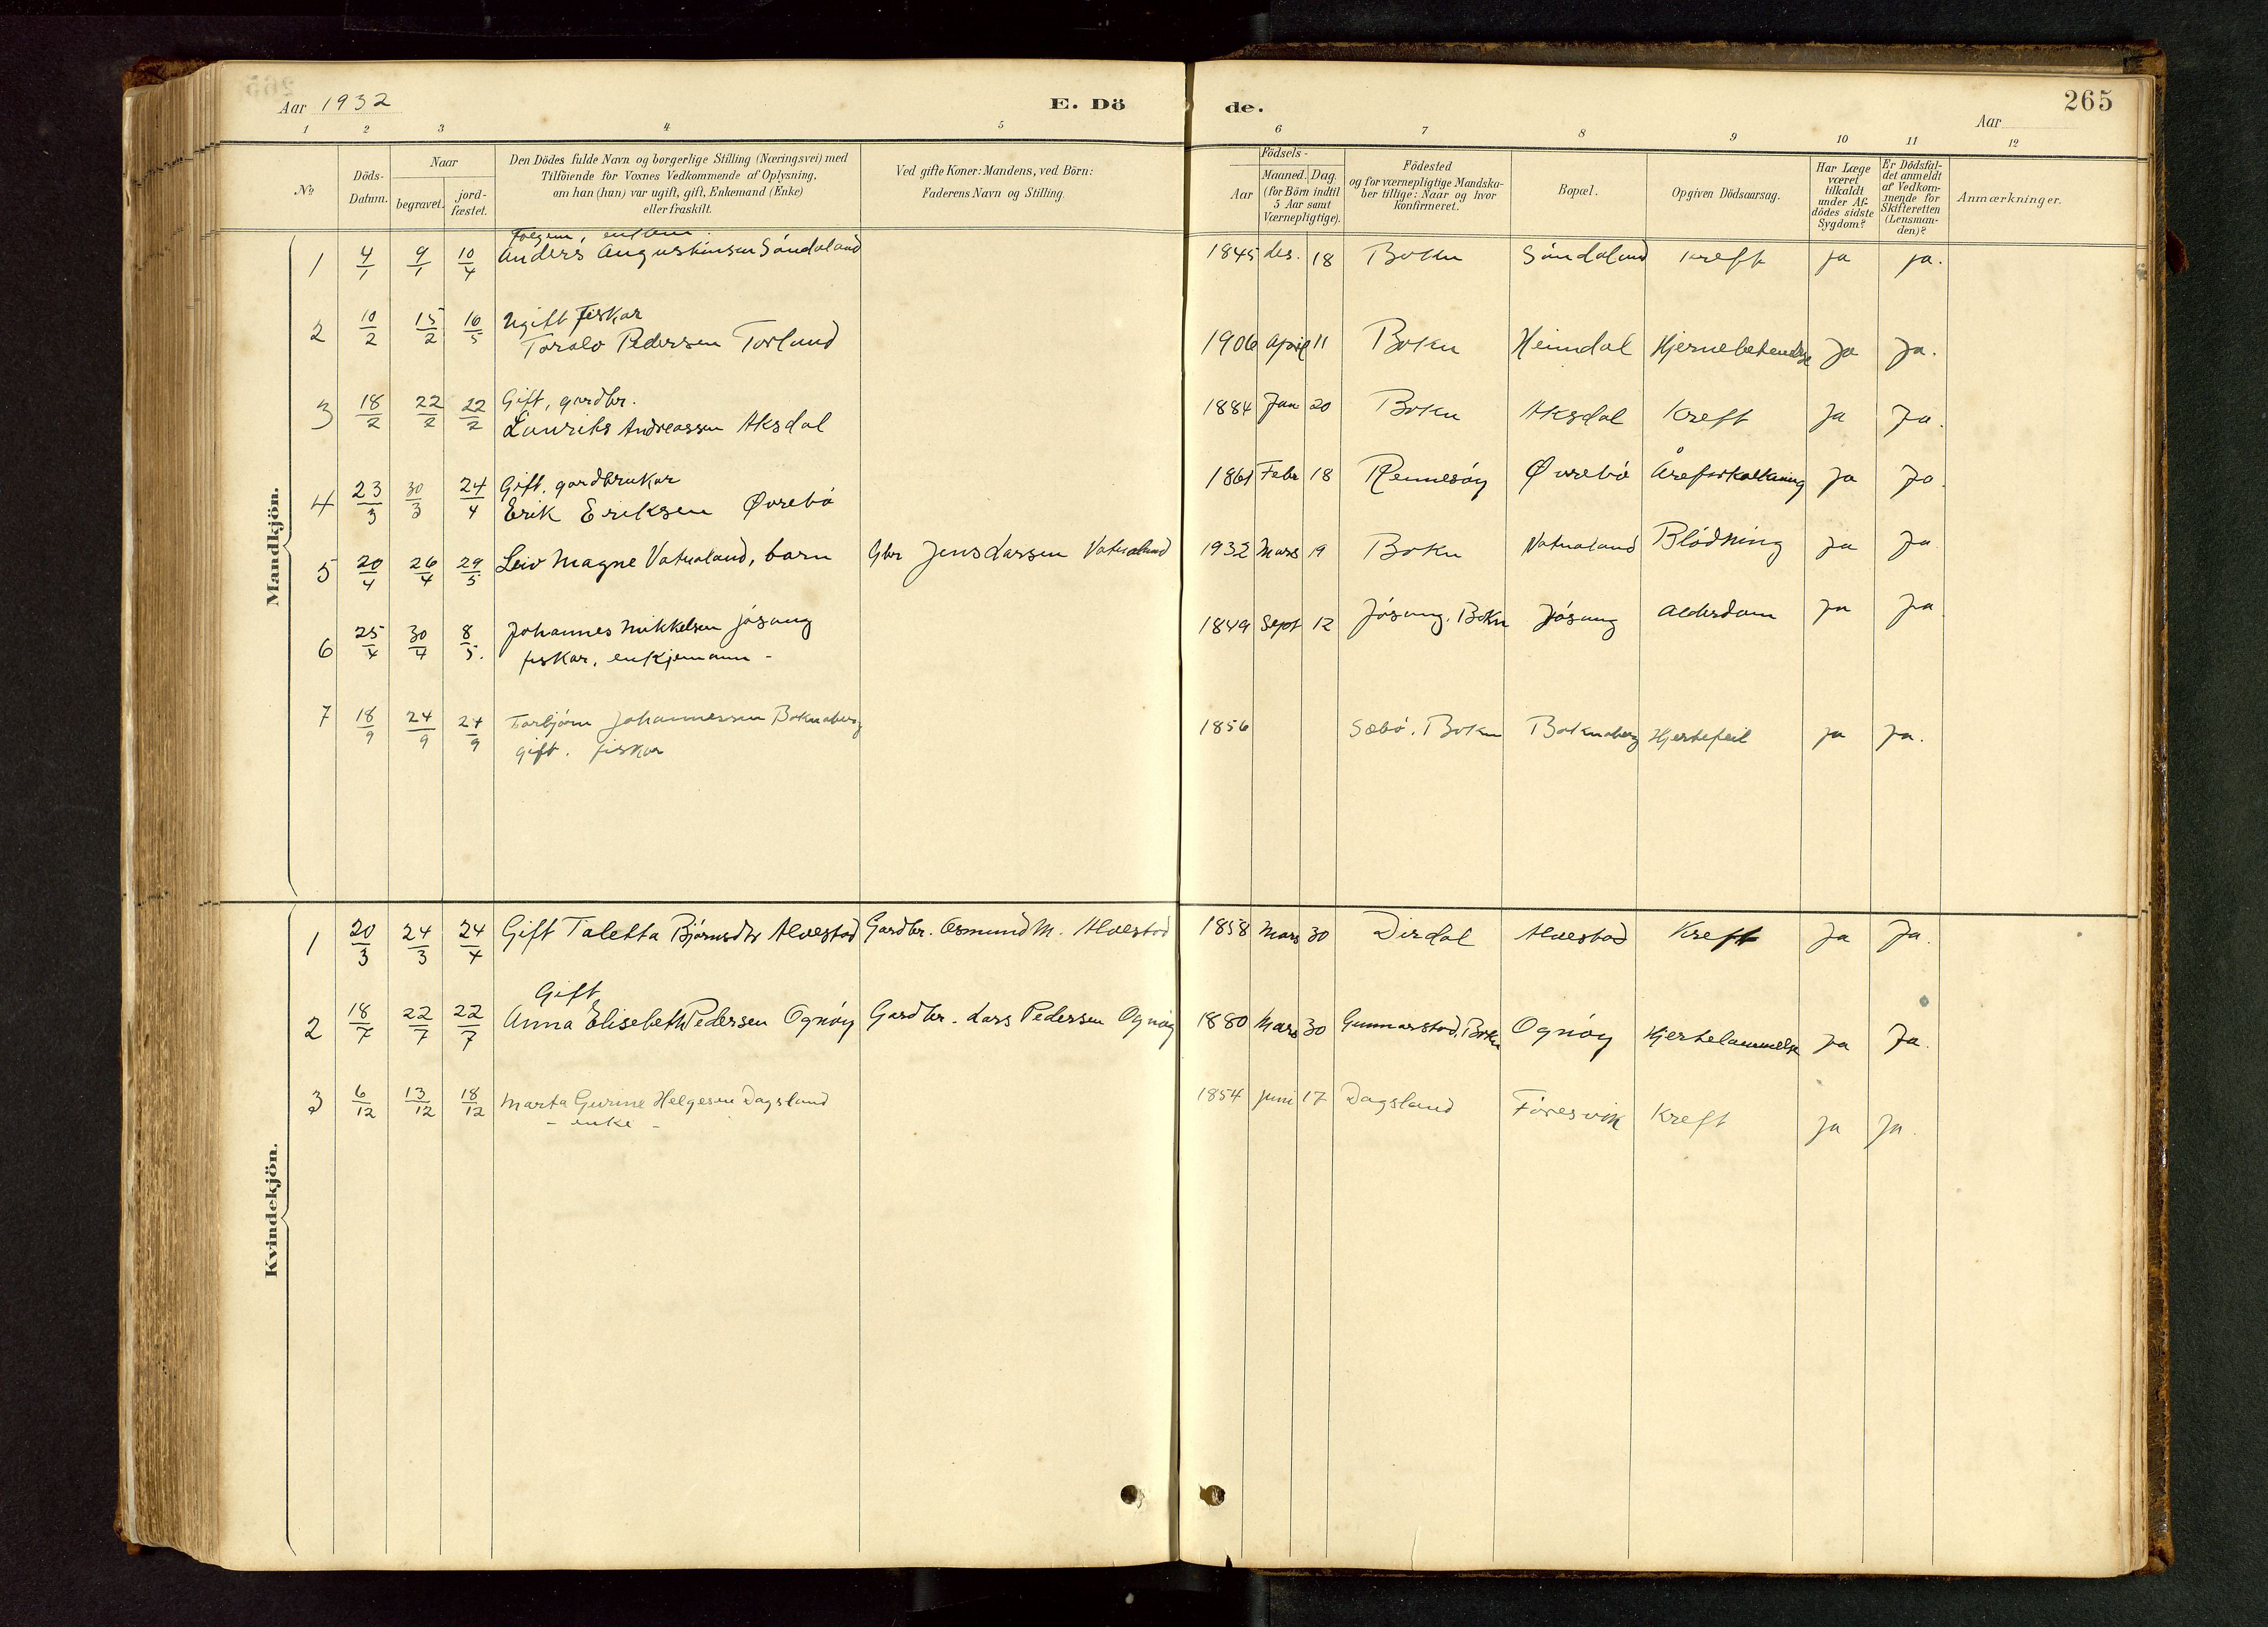 Aar 1932
E. Dö
de.
265
Aar
1 2 3 4 5 6 7 8 9 10 11 12
No
Döds-
Datum.
Naar
begravet.
jord-
fæstet.
Den Dödes fulde Navn og borgerlige Stilling (Næringsvei) med
Tilföiende for Voxnes Vedkommende af Oplysning,
om han (hun) var ugift, gift, Enkemand (Enke)
eller fraskilt.
Ved gifte Koner: Mandens, ved Börn:
Faderens Navn og Stilling.
Födsels-
Aar
Maaned. Dag.
(for Börn indtil
5 Aar samt
Værnepligtige).
Födested
og for værnepligtige Mandska-
ber tillige: Naar og hvor
konfirmeret.
Bopæl.
Opgiven Dödsaarsag.
Har Læge
været
tilkaldt
under Af-
dödes sidste
Sygdom?
Er Dödsfal-
det anmeldt
af Vedkom-
mende for
Skifteretten
(Lensman-
den)?
Anmærkninger.
Mandkjön.
1 4/1 9/1 10/4 Anders Augustinsen Sandaland 1845 des. 18 Bokn Sandaland Kreft ja ja.
Ugift fiskar
2 10/2 15/2 16/5 Toralv Pedersen Torland 1906 April 11 Bokn Heimdal Ja Ja.
Gift, gardbr.
3 18/2 22/2 22/2 Lauriks Andreassen Aksdal 1884 Jan 20 Bokn Aksdal Kreft Ja Ja.
Gift, gardbrukar
4 23/3 30/3 24/4 Erik Eriksen Øvrebø 1861 Febr 18 Rennesøy Øvrebø Åreforkalkning Ja Ja.
5 20/4 26/4 29/5 Leiv Magne Vatnaland, barn Gbr Jens Larssen Vatnaland 1932 Mars 19 Bokn Vatnaland Blødning Ja Ja
6 25/4 30/4 8/5. Johannes Mikkelsen Jøsang 1849 Sept 12 Jøsang, Bokn Jøsang Alderdom Ja Ja
fiskar, enkjemann -
7 18/9 24/9 24/9 Torbjørn Johannessen Boknaberg 1856 Sæbø, Bokn Boknaberg Hjertefeil Ja Ja.
gift. fiskar
Kvindekjön.
1 20/3 24/3 24/4 Gift Taletta Bjørnsdtr Alvestad Gardbr. Osmund M. Alvestad 1858 Mars 30 Dirdal Alvestad Kreft Ja Ja.
Gift
2 18/7 22/7 22/7 Anna Elisebeth Pedersen Ognøy Gardbr. Lars Pedersen Ognøy 1880 Mars 30 Gunnarstad, Bokn Ognøy Hjertelammelse Ja Ja.
3 6/12 13/12 18/12 Marta Gurine Helgesen Dagsland 1854 juni 17 Dagsland Føresvik Kreft Ja Ja.
- enke -